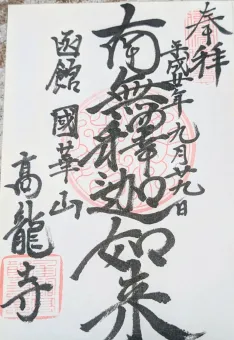 奉拝
平成廿年九月廿九日
南無釋迦如来
函館 國華山
高龍寺